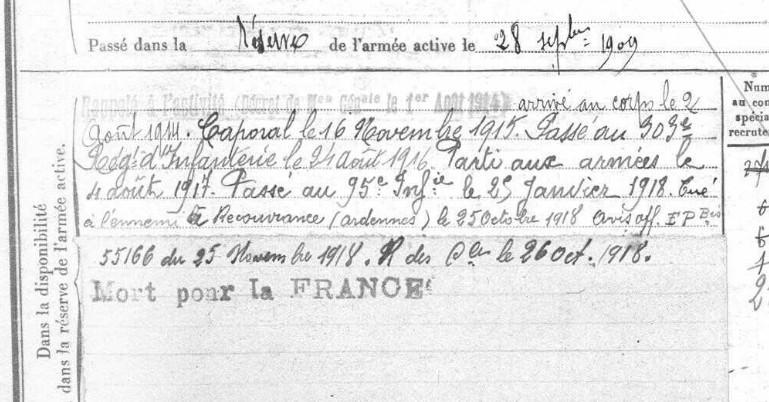 Passé dans la Réserve de l'armée active le 28 septbre 1909
Rappelé à l'activité (Décret de Mon Génale le 1er Août 1914) arrivé au corps le 2
Août 1914. Caporal le 16 Novembre 1915. Passé au 303e
Régt d'Infanterie le 24 août 1916. Parti aux armées le
4 août 1917. Passé au 95e Infie le 25 Janvier 1918. Tué
à l'ennemi à Recouvrance (ardennes) le 25 Octobre 1918 avis off. EP Bis
55166 du 25 Novembre 1918. R des Cles le 26 Oct. 1918.
Mort pour la FRANCE
Dans la disponibilité
dans la réserve de l'armée active.
Num
au con
spécia
recrute